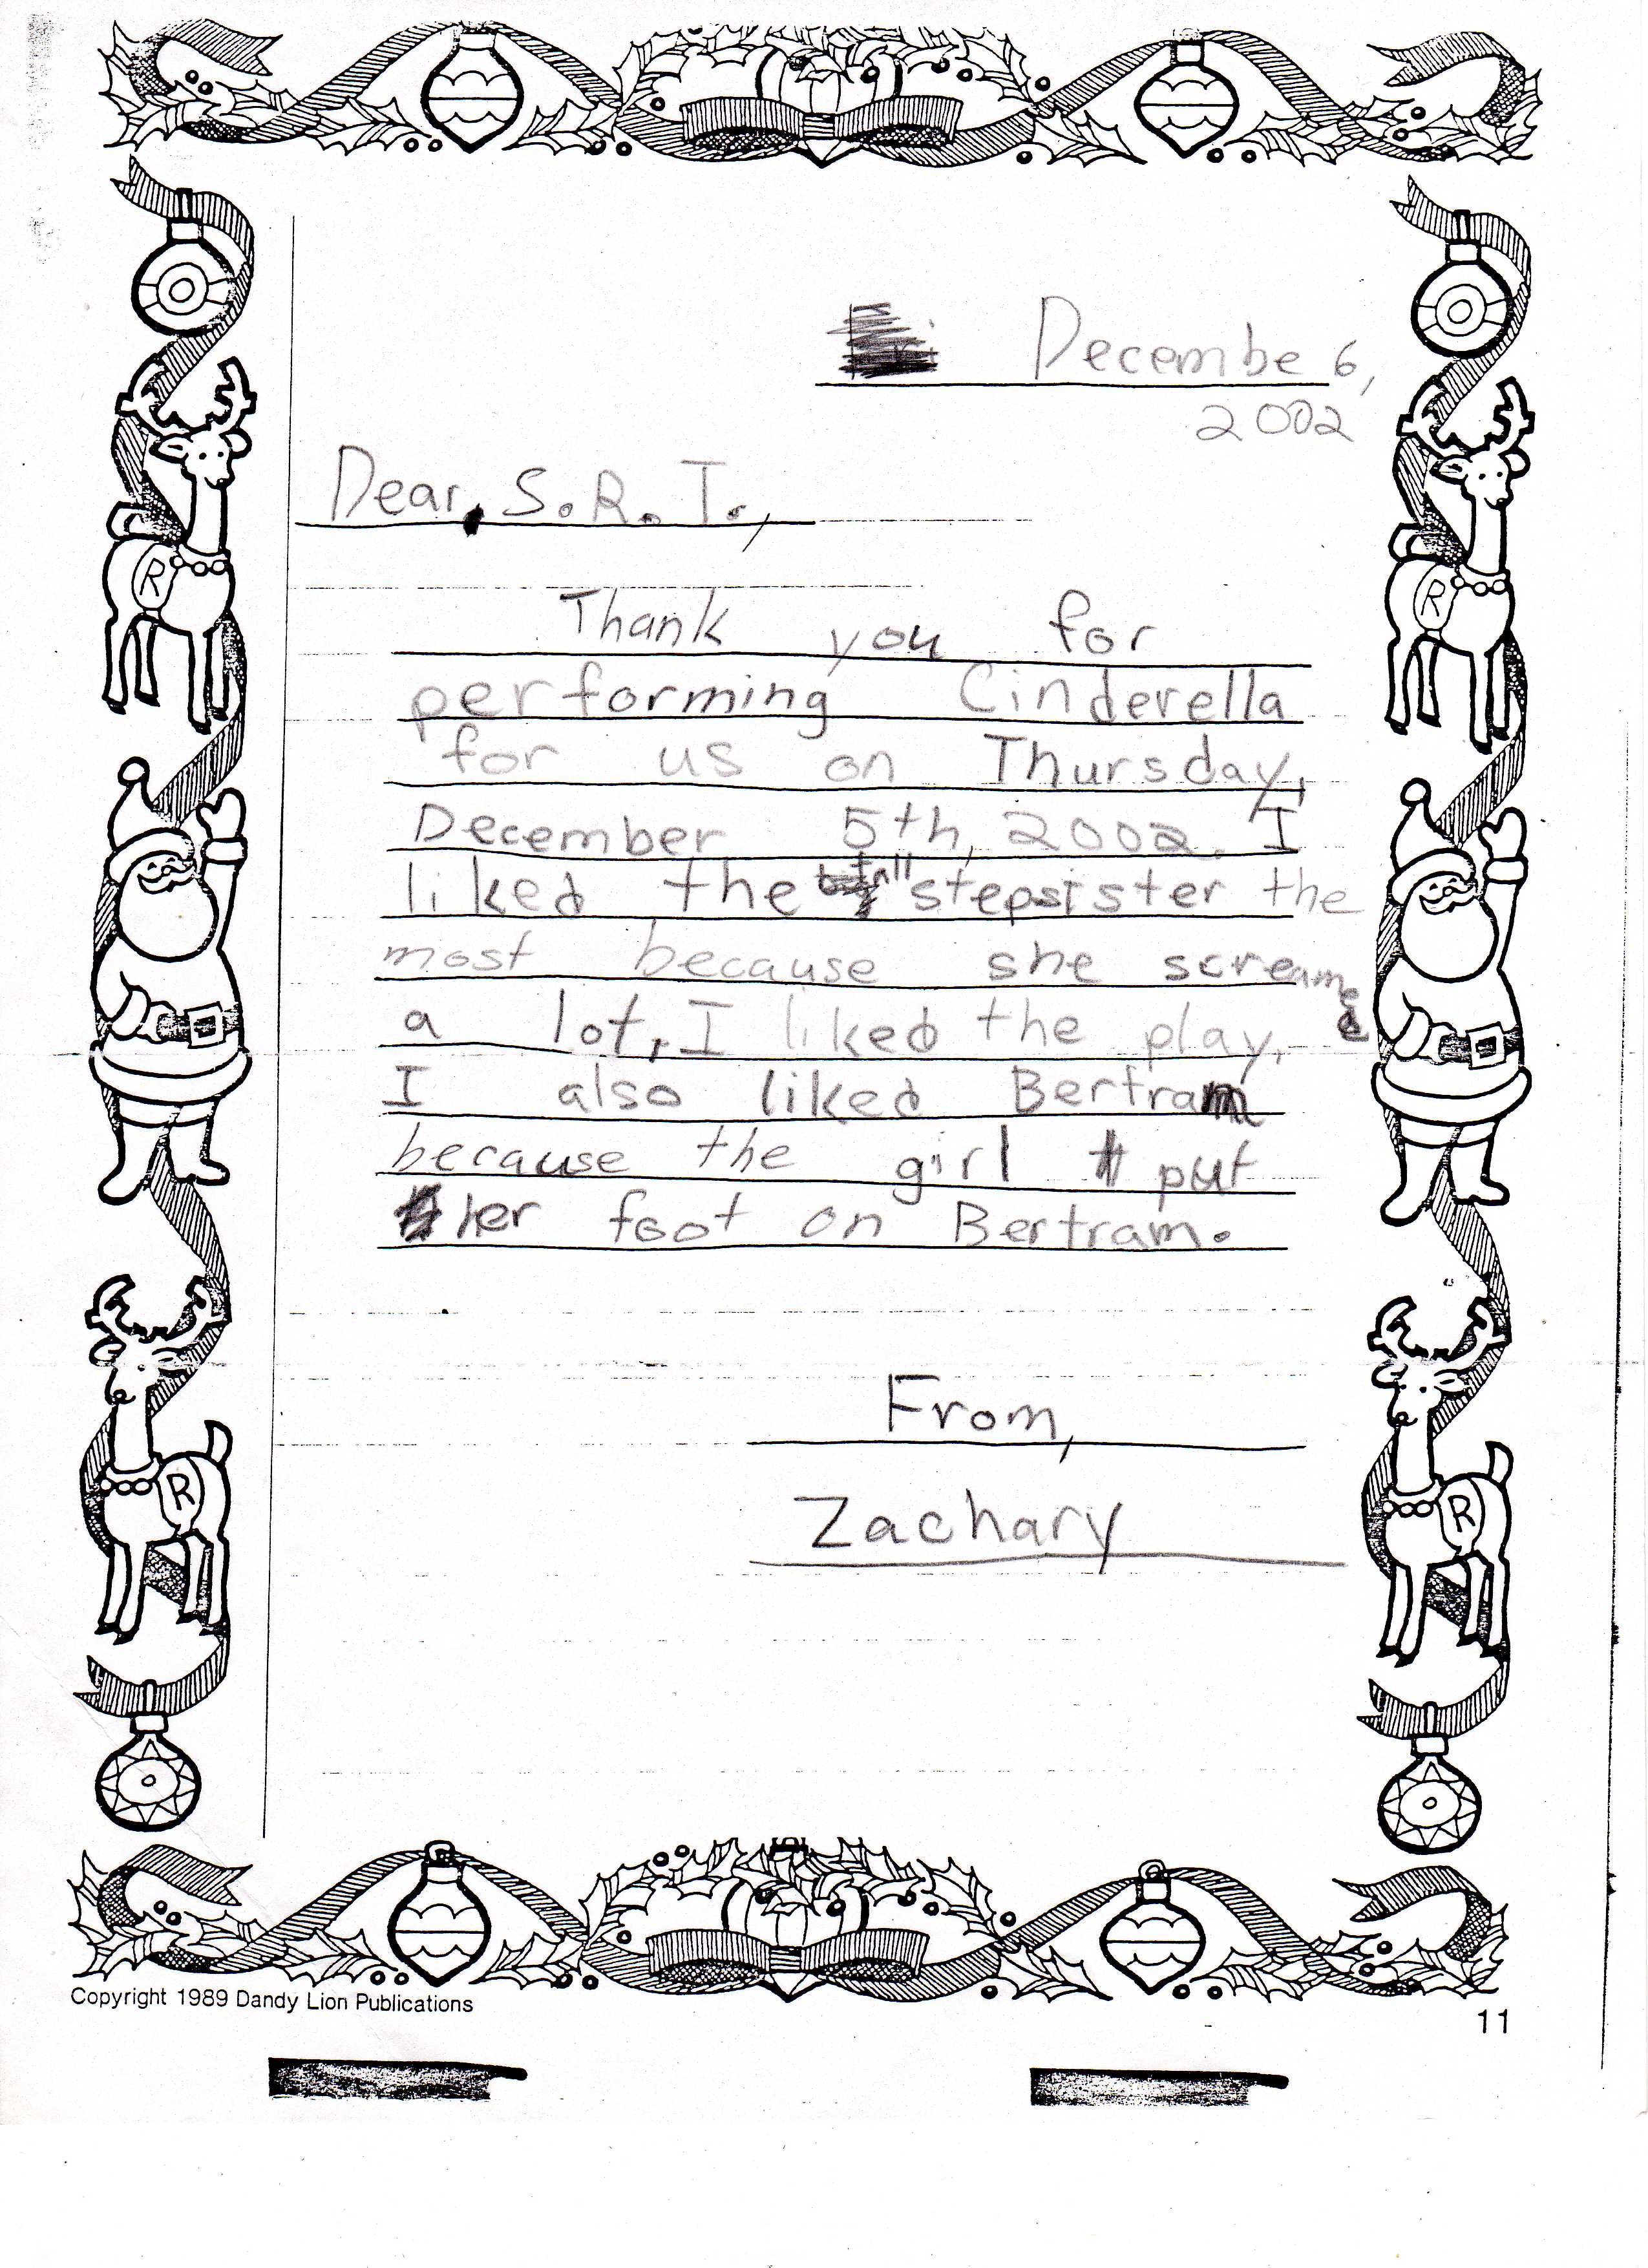 Decembe 6,
2002
Dear, S. R. T.,
Thank you for
performing Cinderella
for us on Thursday,
December 5th, 2002. I
liked the stepsister the
most because she screamed
a lot, I liked the play.
I also liked Bertram
because the girl put
her foot on Bertram.
From,
Zachary
R
R
R
R
Copyright 1989 Dandy Lion Publications
11